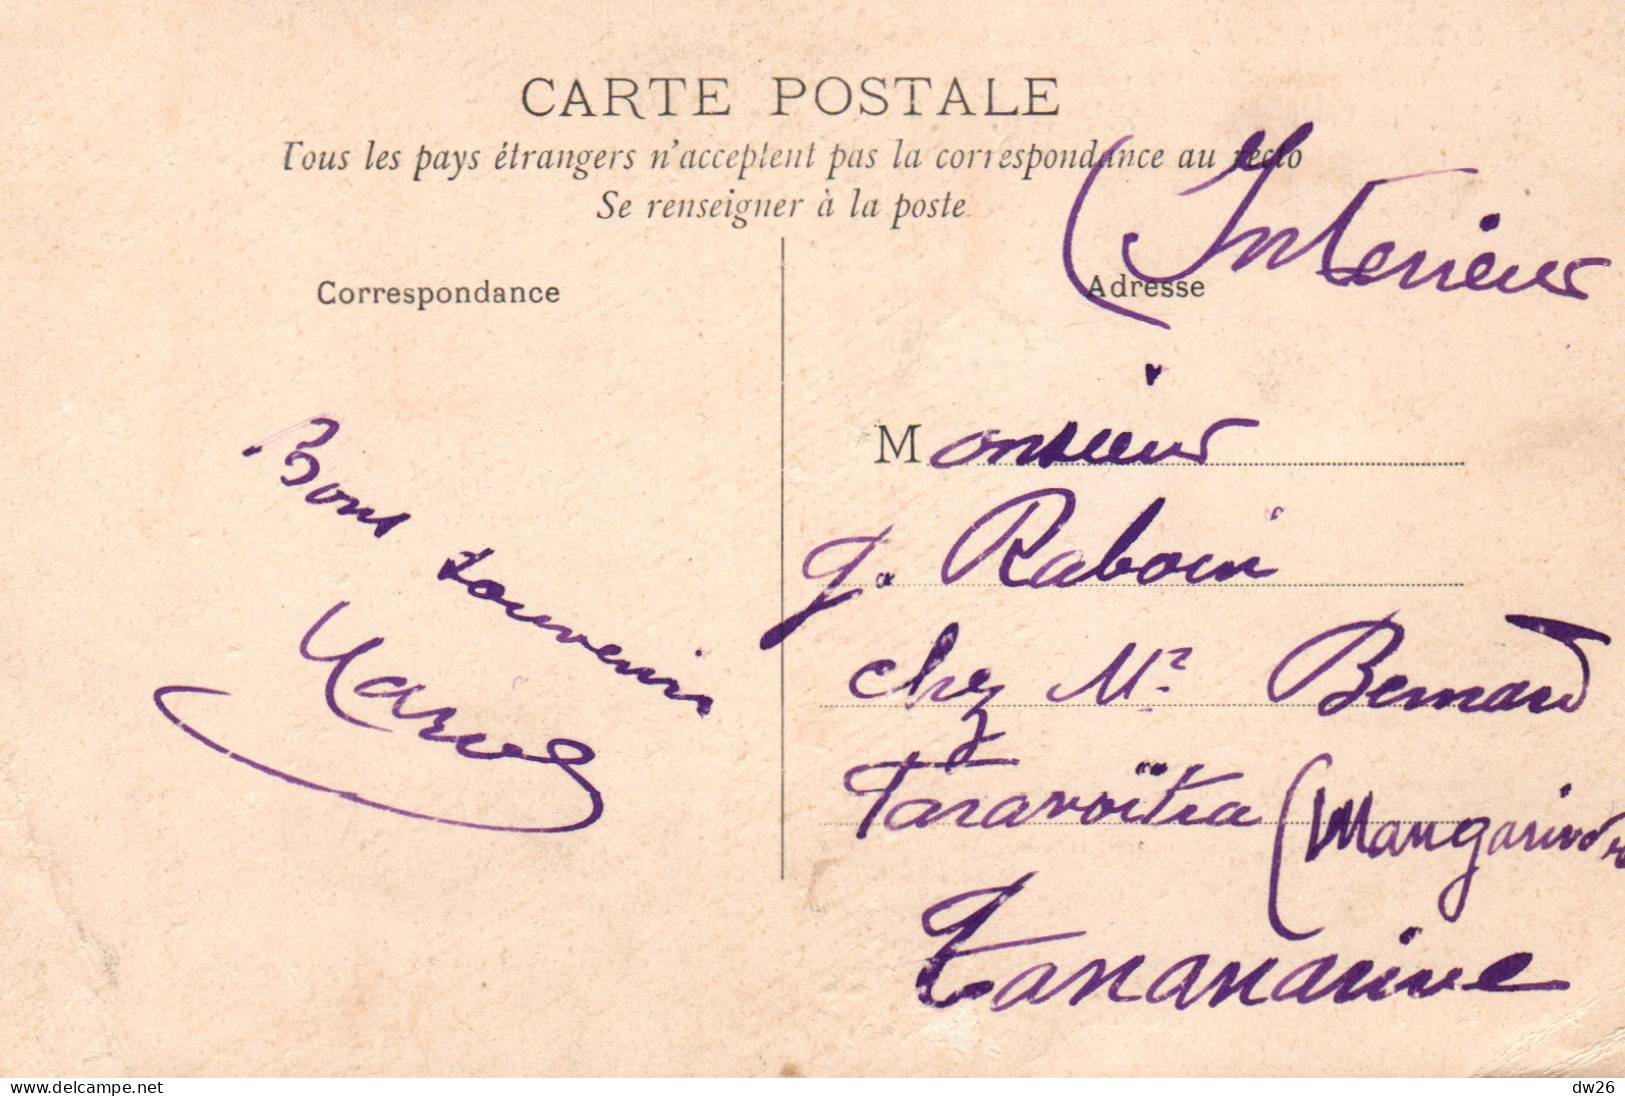 CARTE POSTALE
Tous les pays étrangers n'acceptent pas la correspondance au recto
Se renseigner à la poste
(Interieur
Correspondance
Adresse
Monsieur
J. Raboin
chez Mr Bernard
(Mangarivo
Tananarive
Bons souvenirs
© delcampe.net
dw26